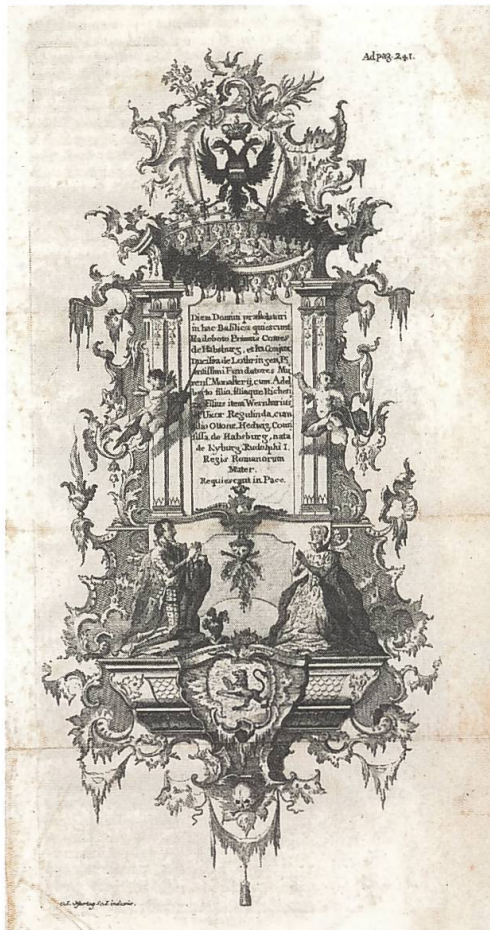 Ad pag. 241.
Diem Domini præstolaturi
in hac Basilica quiescunt
Radeboto Primus Comes
de Habsburg, et Ita Conjux
Ducissa de Lothringen, Pi
entissimi Fundatores Mu
rens. Monasterij, cum Adel
berto filio, filiaque Richen
Filius item Wernharius
Uxor Regulinda, cum
filio Ottone, Hedwig Com
tissa de Habsburg, nata
de Kyburg Rudolphi I.
Regis Romanorum
Mater.
Requiescant in Pace.